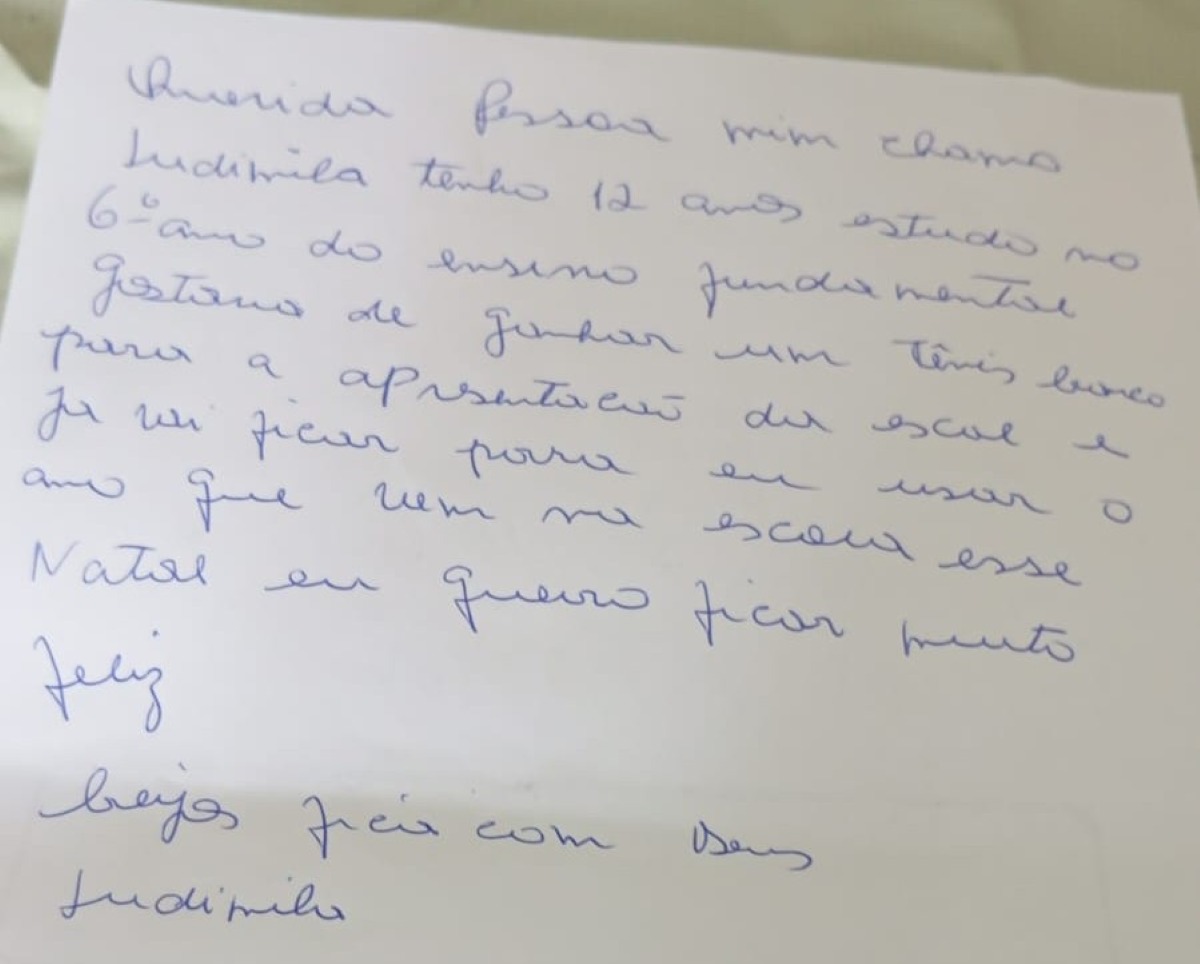 Querida Pessoa mim chamo
Ludimila tenho 12 anos estudo no
6º ano do ensino fundamental
gostaria de ganhar um tênis branco
para a apresentação da escol e
ja vai ficar para eu usar o
ano que vem na escola esse
Natal eu quero ficar muito
feliz
beijos fica com Deus
Ludimila